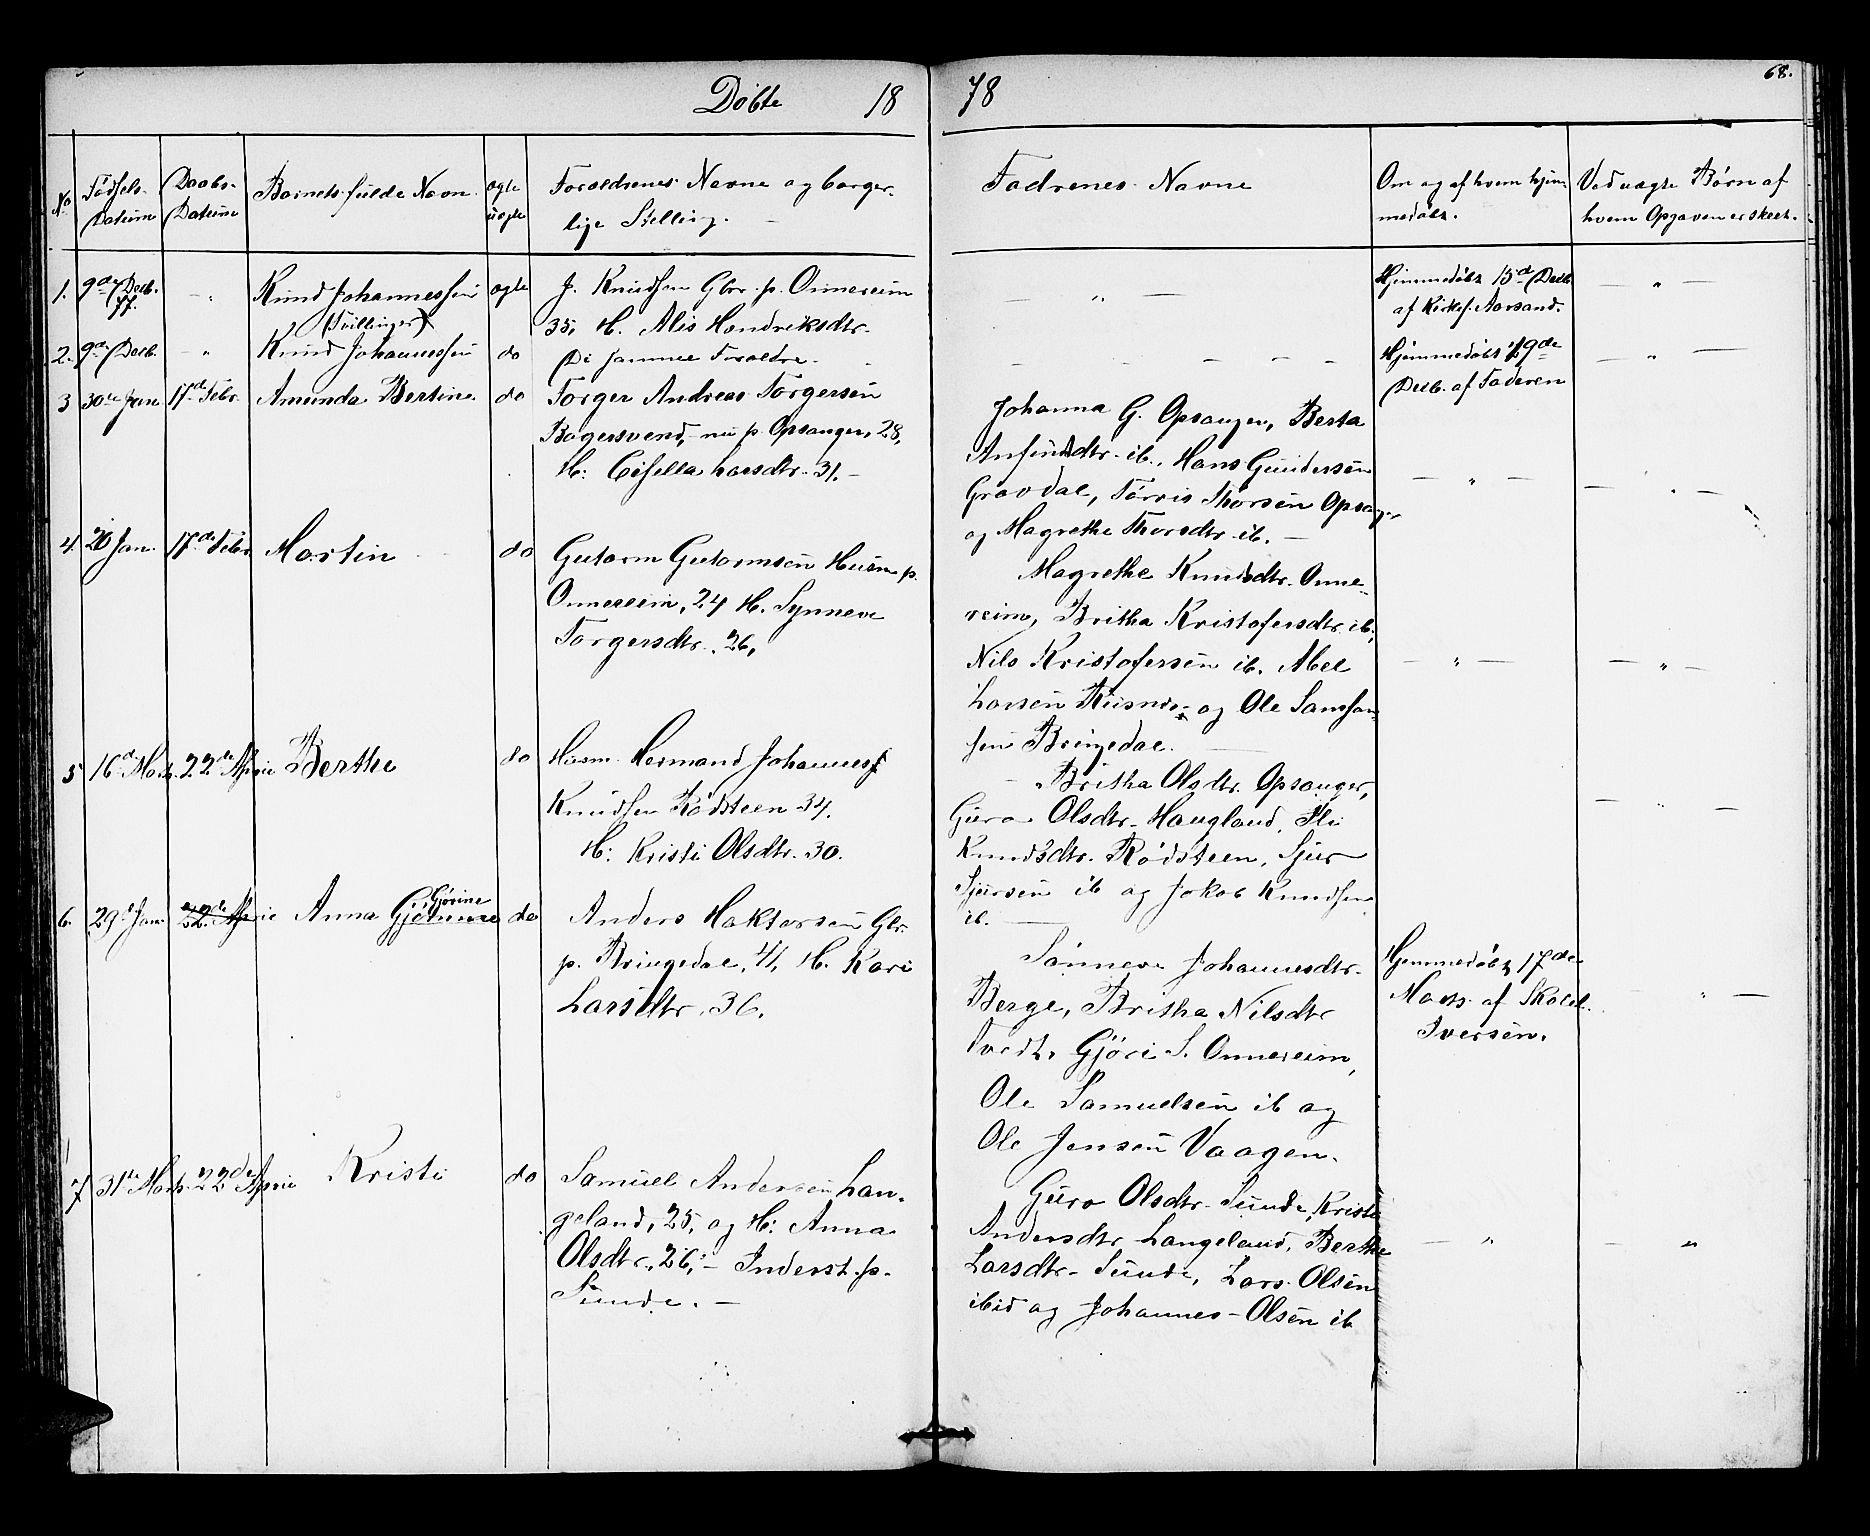 68.
Döbte 18 78
No Födsels-Datum
Daabs-Datum
Barnets fulde Navn
ægte uægte
Forældrenes Navne og borger-
lige Stelling.
Fadrenes Navne
Om og af hvem hjem-
medöbt.
Ved uægte Börn af
hvem Opgaven er skeet.
1. 9de Decb. 77. Knud Johannessen ægte J. Knudsen Gbr. p. Onnereim
(Tvillinger) 35, H. Alis Hendriksdtr.
Hjemmedöbt 15de Decb.
af Kirkes. Aarsand.
2. 9de Decb. Knud Johannessen do De samme Foraldre.
Hjemmedöbt 19de
Decb. af Faderen
3 30te Jan 17de Febr. Amunda Bertine do Torger Andreas Torgersen
Bagersvend, nu p. Opsanger, 28,
H: Larsdtr. 31.
Johanna G. Opsanger, Berta
Anfindtdtr. ib., Hans Gundersen
Gravdal, Thorsen Opsang.
og Magrethe Thorsdtr ib.
4. 20 Jan. 17de Febr Martin do Gutorm Gutormsen Husm p.
Onnereim, 24 H. Synneve
Torgersdtr. 26,
Magrethe Knudsdtr. Onne-
reim, Britha Kristofersdtr. ib.,
Nils Kristofersen ib. Abel
Larsen Husnes og Ole Samson-
sen Bringedal.
5 16de Mart. 22de April Berthe do Husm. Hermand Johannes
Knudsen Rödsteen 34.
H: Kristi Olsdtr. 30.
Britha Olsdtr. Opsanger,
Guro Olsdtr. Haugland, Eli
Knudsdtr. Rödsteen, Sjur
Sjursen ib og Jakob Knudsen
ib.
6. 29de Jan. 22de April Anna Gjörine do Anders Haktorsen Gbr.
p. Bringedal, 41, H. Kari
Larsdtr. 36.
Sönneve Johannesdtr.
Berge, Britha Nilsdtr
Tvedt, Gjöri S. Onnereim,
Ole Samuelsen ib og
Ole Jensen Vaagen.
Hjemmedöbt 17de
Marts. af Skolel.
Iversen.
7 31te Marts. 22de April Kristi do Samuel Andersen Lan-
geland, 25, og H: Anna
Olsdtr. 26, – Inderst. p.
Sunde. –
Guro Olsdtr. Sunde, Kristi
Andersdtr Langeland, Berthe
Larsdtr. Sunde, Lars Olsen
ibid og Johannes Olsen ib